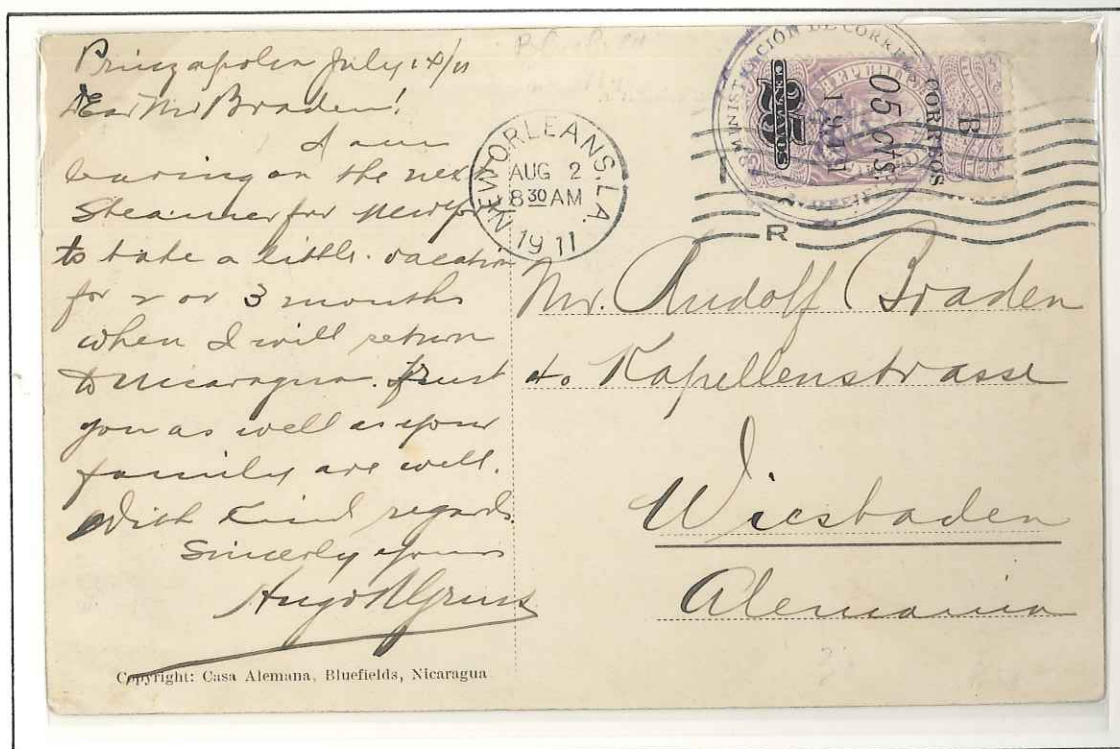 Prinzapolca July 14/11
Dear Mr Braden!
I am
leaving on the next
Steamer for New York
to take a little vacation
for 2 or 3 months
when I will return
to Nicaragua. Trust
you as well as your
family are well.
With kind regards
Sincerly yours
Hugo
Copyright: Casa Alemana, Bluefields, Nicaragua
NEW ORLEANS, LA.
AUG 2
8 30 AM
1911
ADMINISTRACIÓN DE CORREOS
CORREOS
B
05 cts.
1911
25
CENTAVOS
R
Mr. Rudolf Braden
Kapellenstrasse
Wiesbaden
Alemania